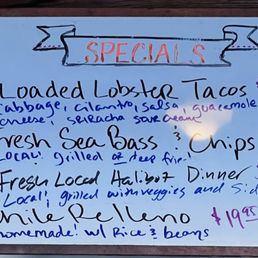 SPECIALS
Loaded Lobster Tacos
cabbage, cilantro, salsa, guacamole
cheese, sriracha sour cream
Fresh Sea Bass & Chips
LOCAL! grilled or deep fried
Fresh Local Halibut Dinner $
Local! grilled with veggies and Side
Chile Relleno $19.95
homemade! w/ Rice & beans